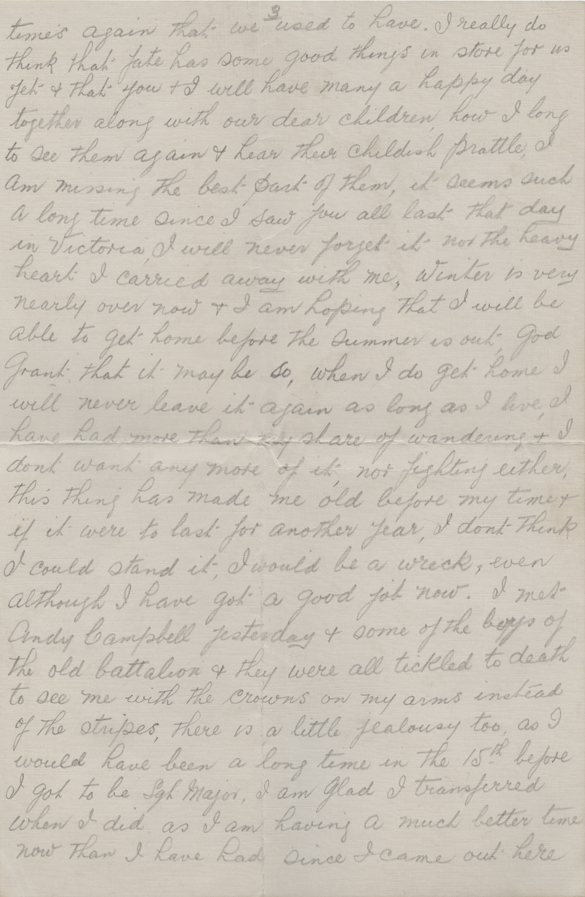 3
times again that we used to have. I really do
think that fate has some good things in store for us
yet & that you & I will have many a happy day
together along with our dear children, how I long
to see them again & hear their childish prattle, I
am missing the best part of them, it seems such
a long time since I saw you all last that day
in Victoria, I will never forget it nor the heavy
heart I carried away with me, Winter is very
nearly over now & I am hoping that I will be
able to get home before the summer is out, God
Grant that it may be so, when I do get home I
will never leave it again as long as I live, I
have had more than my share of wandering & I
dont want any more of it, nor fighting either,
this thing has made me old before my time &
if it were to last for another year, I dont think
I could stand it, I would be a wreck, even
although I have got a good job now. I met
Andy Campbell yesterday & some of the boys of
the old battalion & they were all tickled to death
to see me with the crowns on my arms instead
of the stripes, there is a little jealousy too, as I
would have been a long time in the 15th before
I got to be Sgt Major, I am Glad I transferred
when I did as I am having a much better time
now than I have had since I came out here